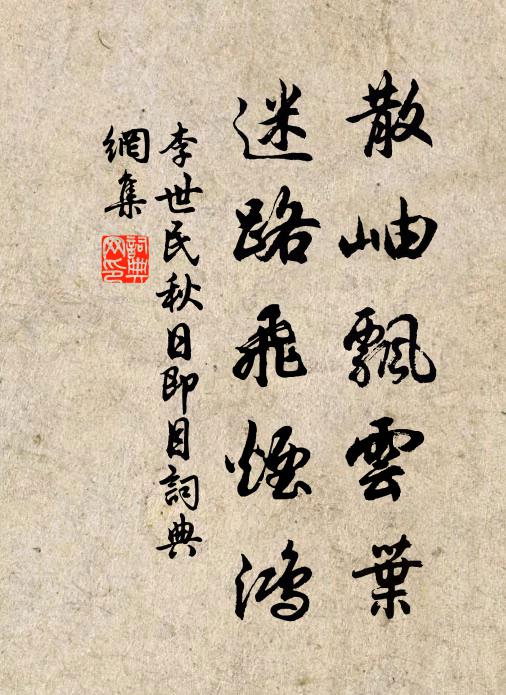 散岫飄雲葉
迷路飛煙鴻
李世民秋日即目詞典
網集
詞典
网印